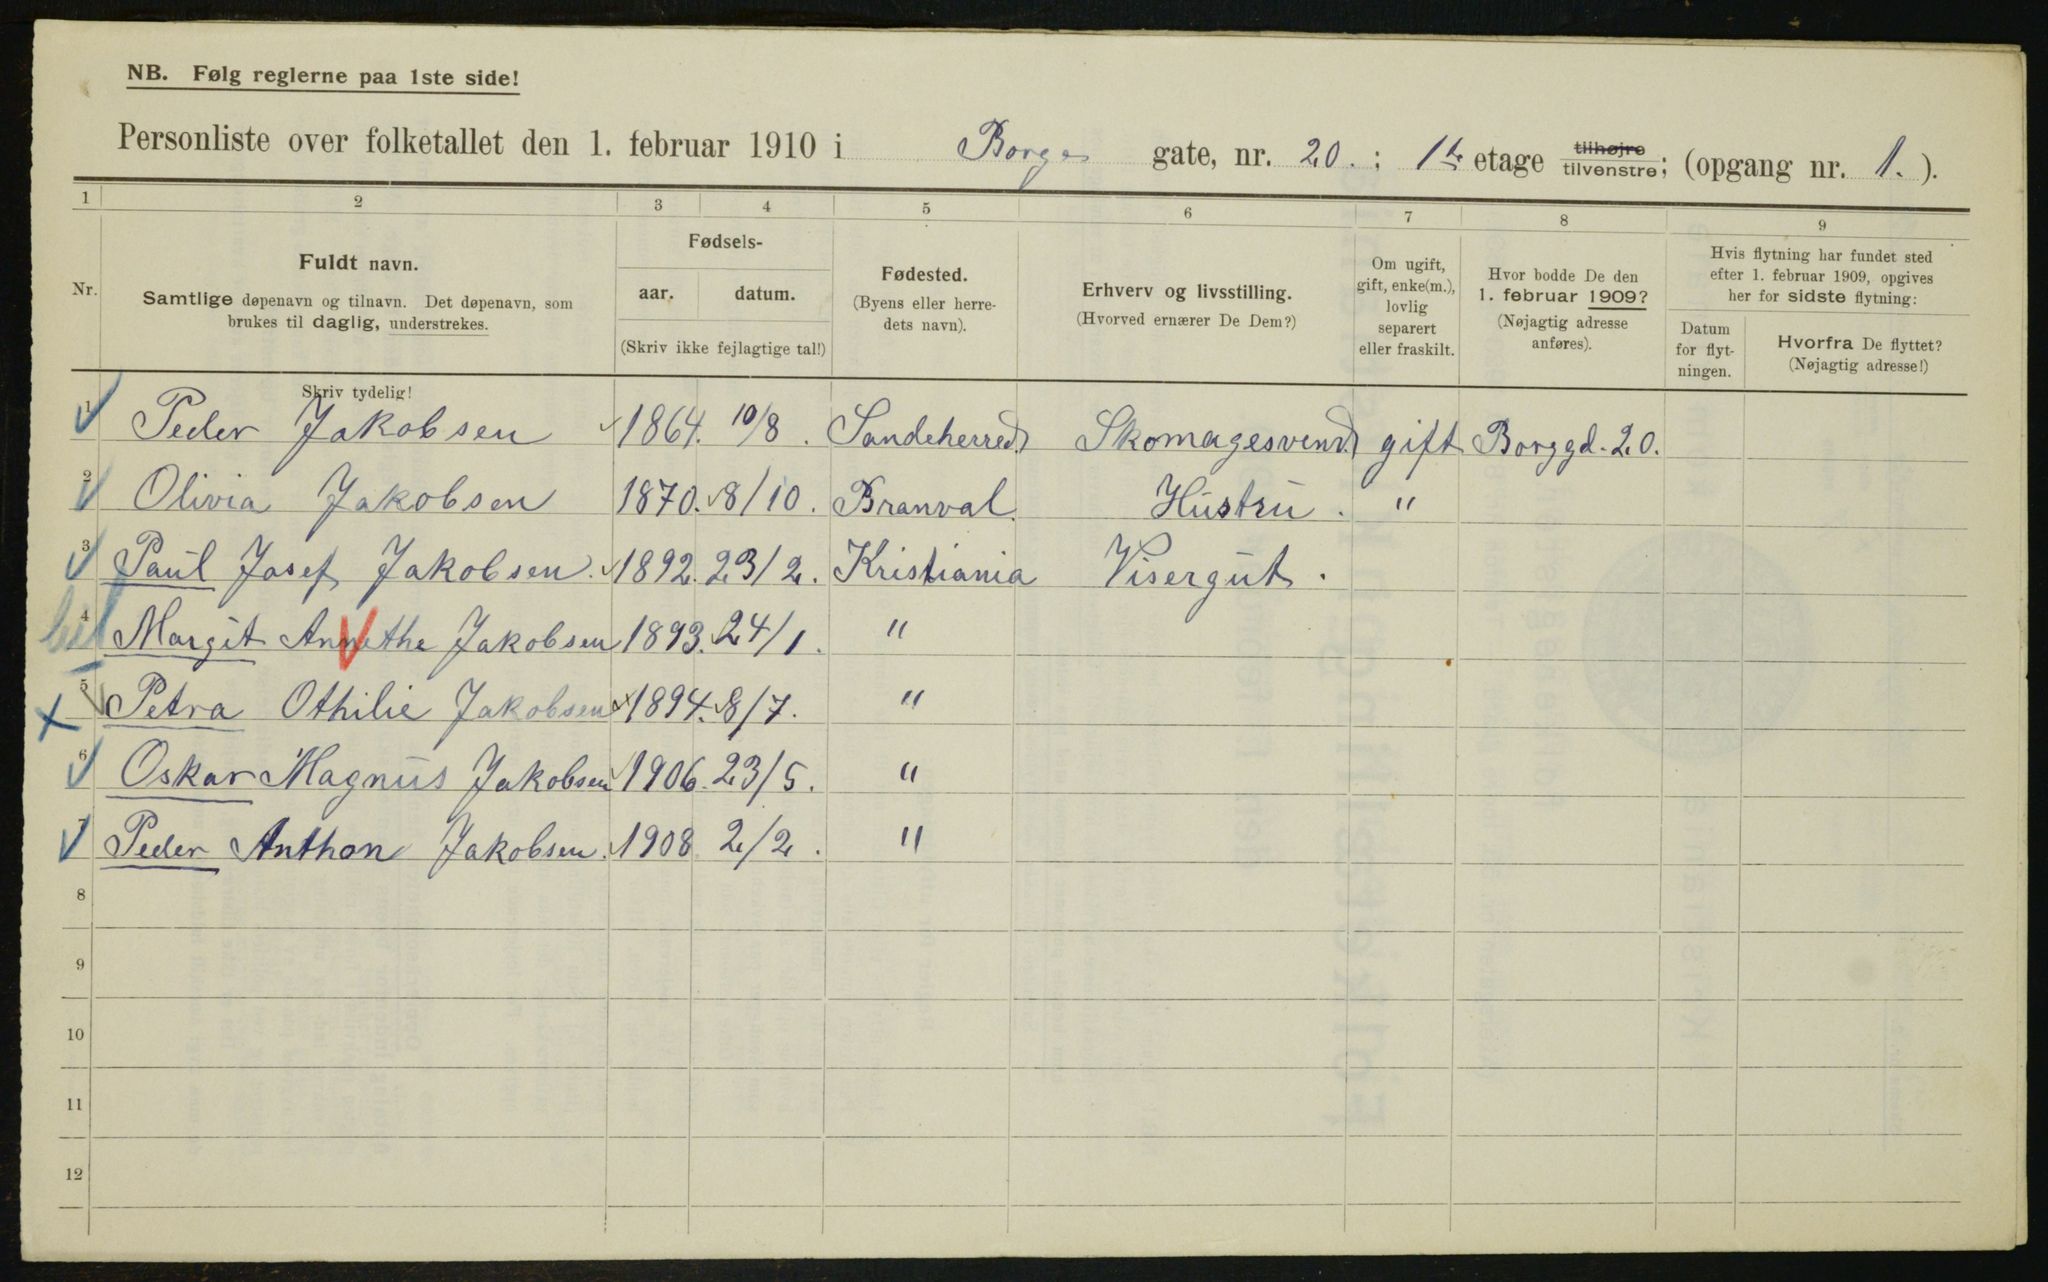 NB. Følg reglerne paa 1ste side!
Personliste over folketallet den 1. februar 1910 i Borge gate, nr. 20. ; 1ste etage tilhøjre tilvenstre; (opgang nr. 1. ).
1 2 3 4 5 6 7 8 9
Nr.
Fuldt navn.
Samtlige døpenavn og tilnavn. Det døpenavn, som
brukes til daglig, understrekes.
Skriv tydelig!
Fødsels-
aar. datum.
(Skriv ikke fejlagtige tal!)
Fødested.
(Byens eller herre-
dets navn).
Erhverv og livsstilling.
(Hvorved ernærer De Dem?)
Om ugift,
gift, enke(m.),
lovlig
separert
eller fraskilt.
Hvor bodde De den
1. februar 1909?
(Nøjagtig adresse
anføres).
Hvis flytning har fundet sted
efter 1. februar 1909, opgives
her for sidste flytning:
Datum
for flyt-
ningen.
Hvorfra De flyttet?
(Nøjagtig adresse!)
1 Peder Jakobsen 1864. 10/8. Sandeherred Skomagesvend gift Borggd. 20.
2 Olivia Jakobsen 1870. 8/10. Branval. Hustru. "
3 Paul Josef Jakobsen. 1892. 23/2. Kristiania Visergut.
4 Margit Annethe Jakobsen 1893. 24/1. "
5 Petra Othilie Jakobsen 1894. 8/7. "
6 Oskar Magnus Jakobsen 1906. 23/5. "
7 Peder Anthon Jakobsen. 1908 2/2. "
8
9
10
11
12